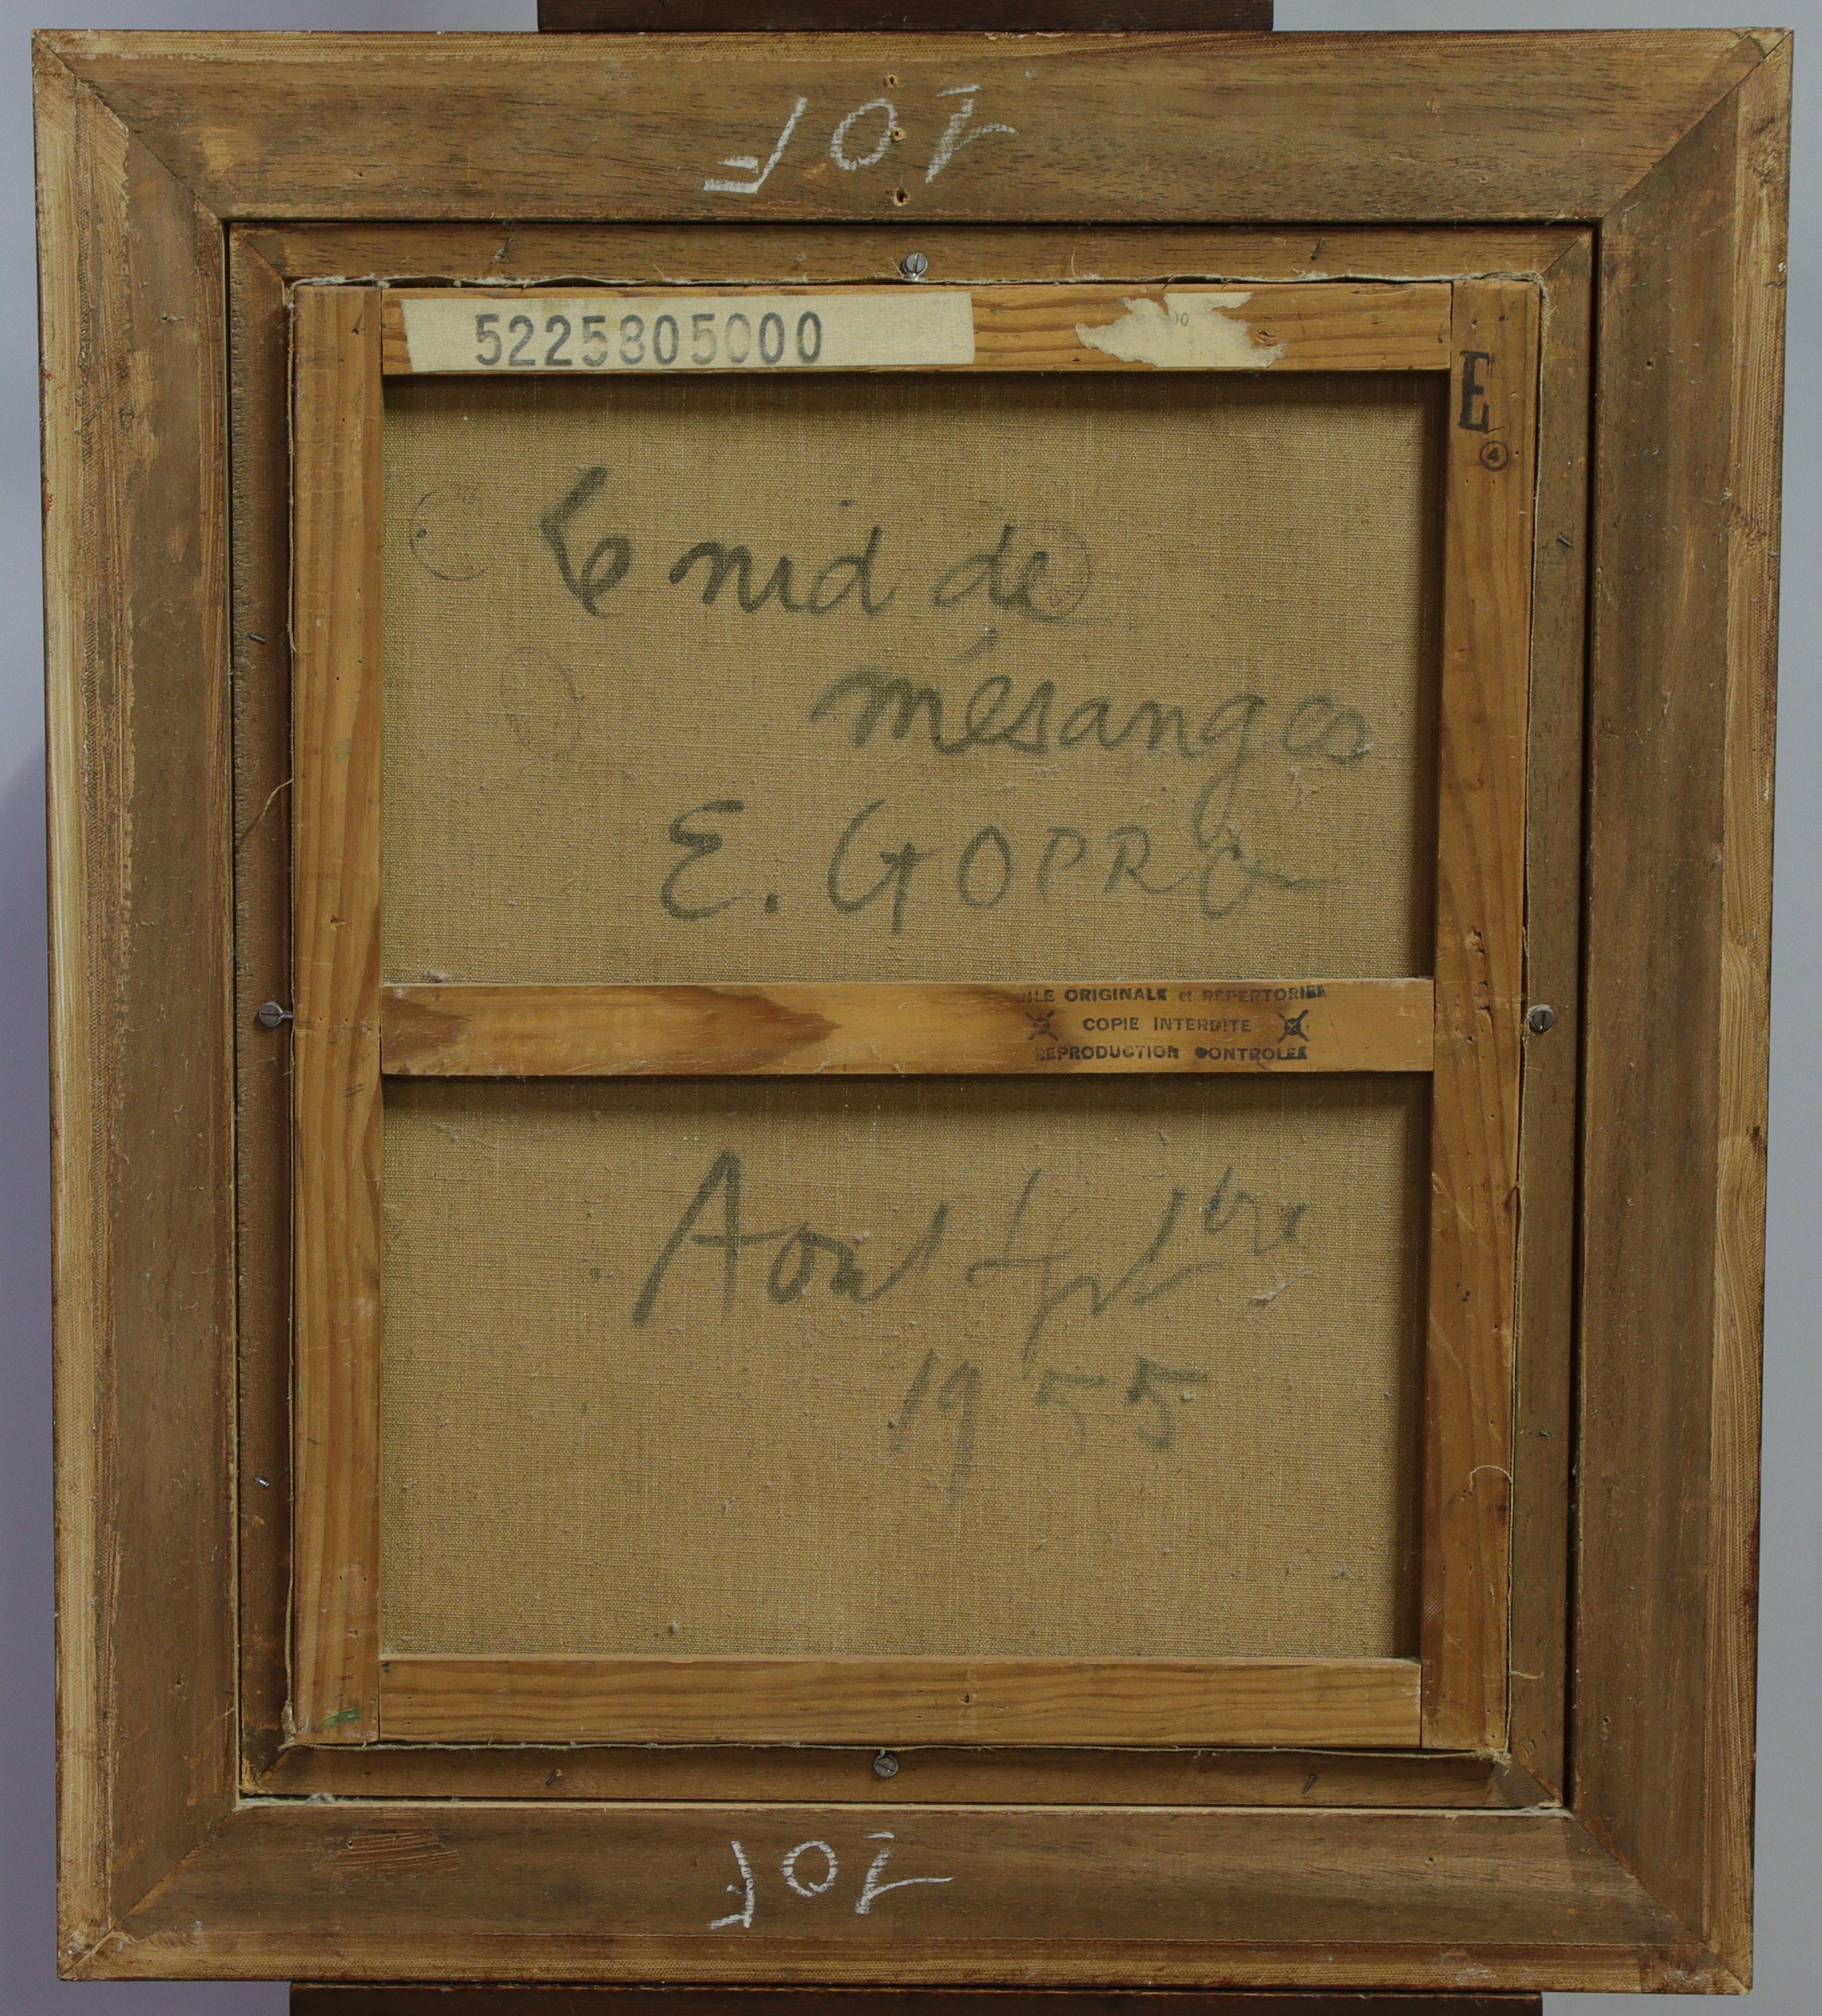 10F
5225805000
E
4
Le nid de
mésanges
E. GOERG
ILE ORIGINALE et RÉPERTORIÉE
COPIE INTERDITE
REPRODUCTION CONTROLÉE
Aout Septbre
1955
10F